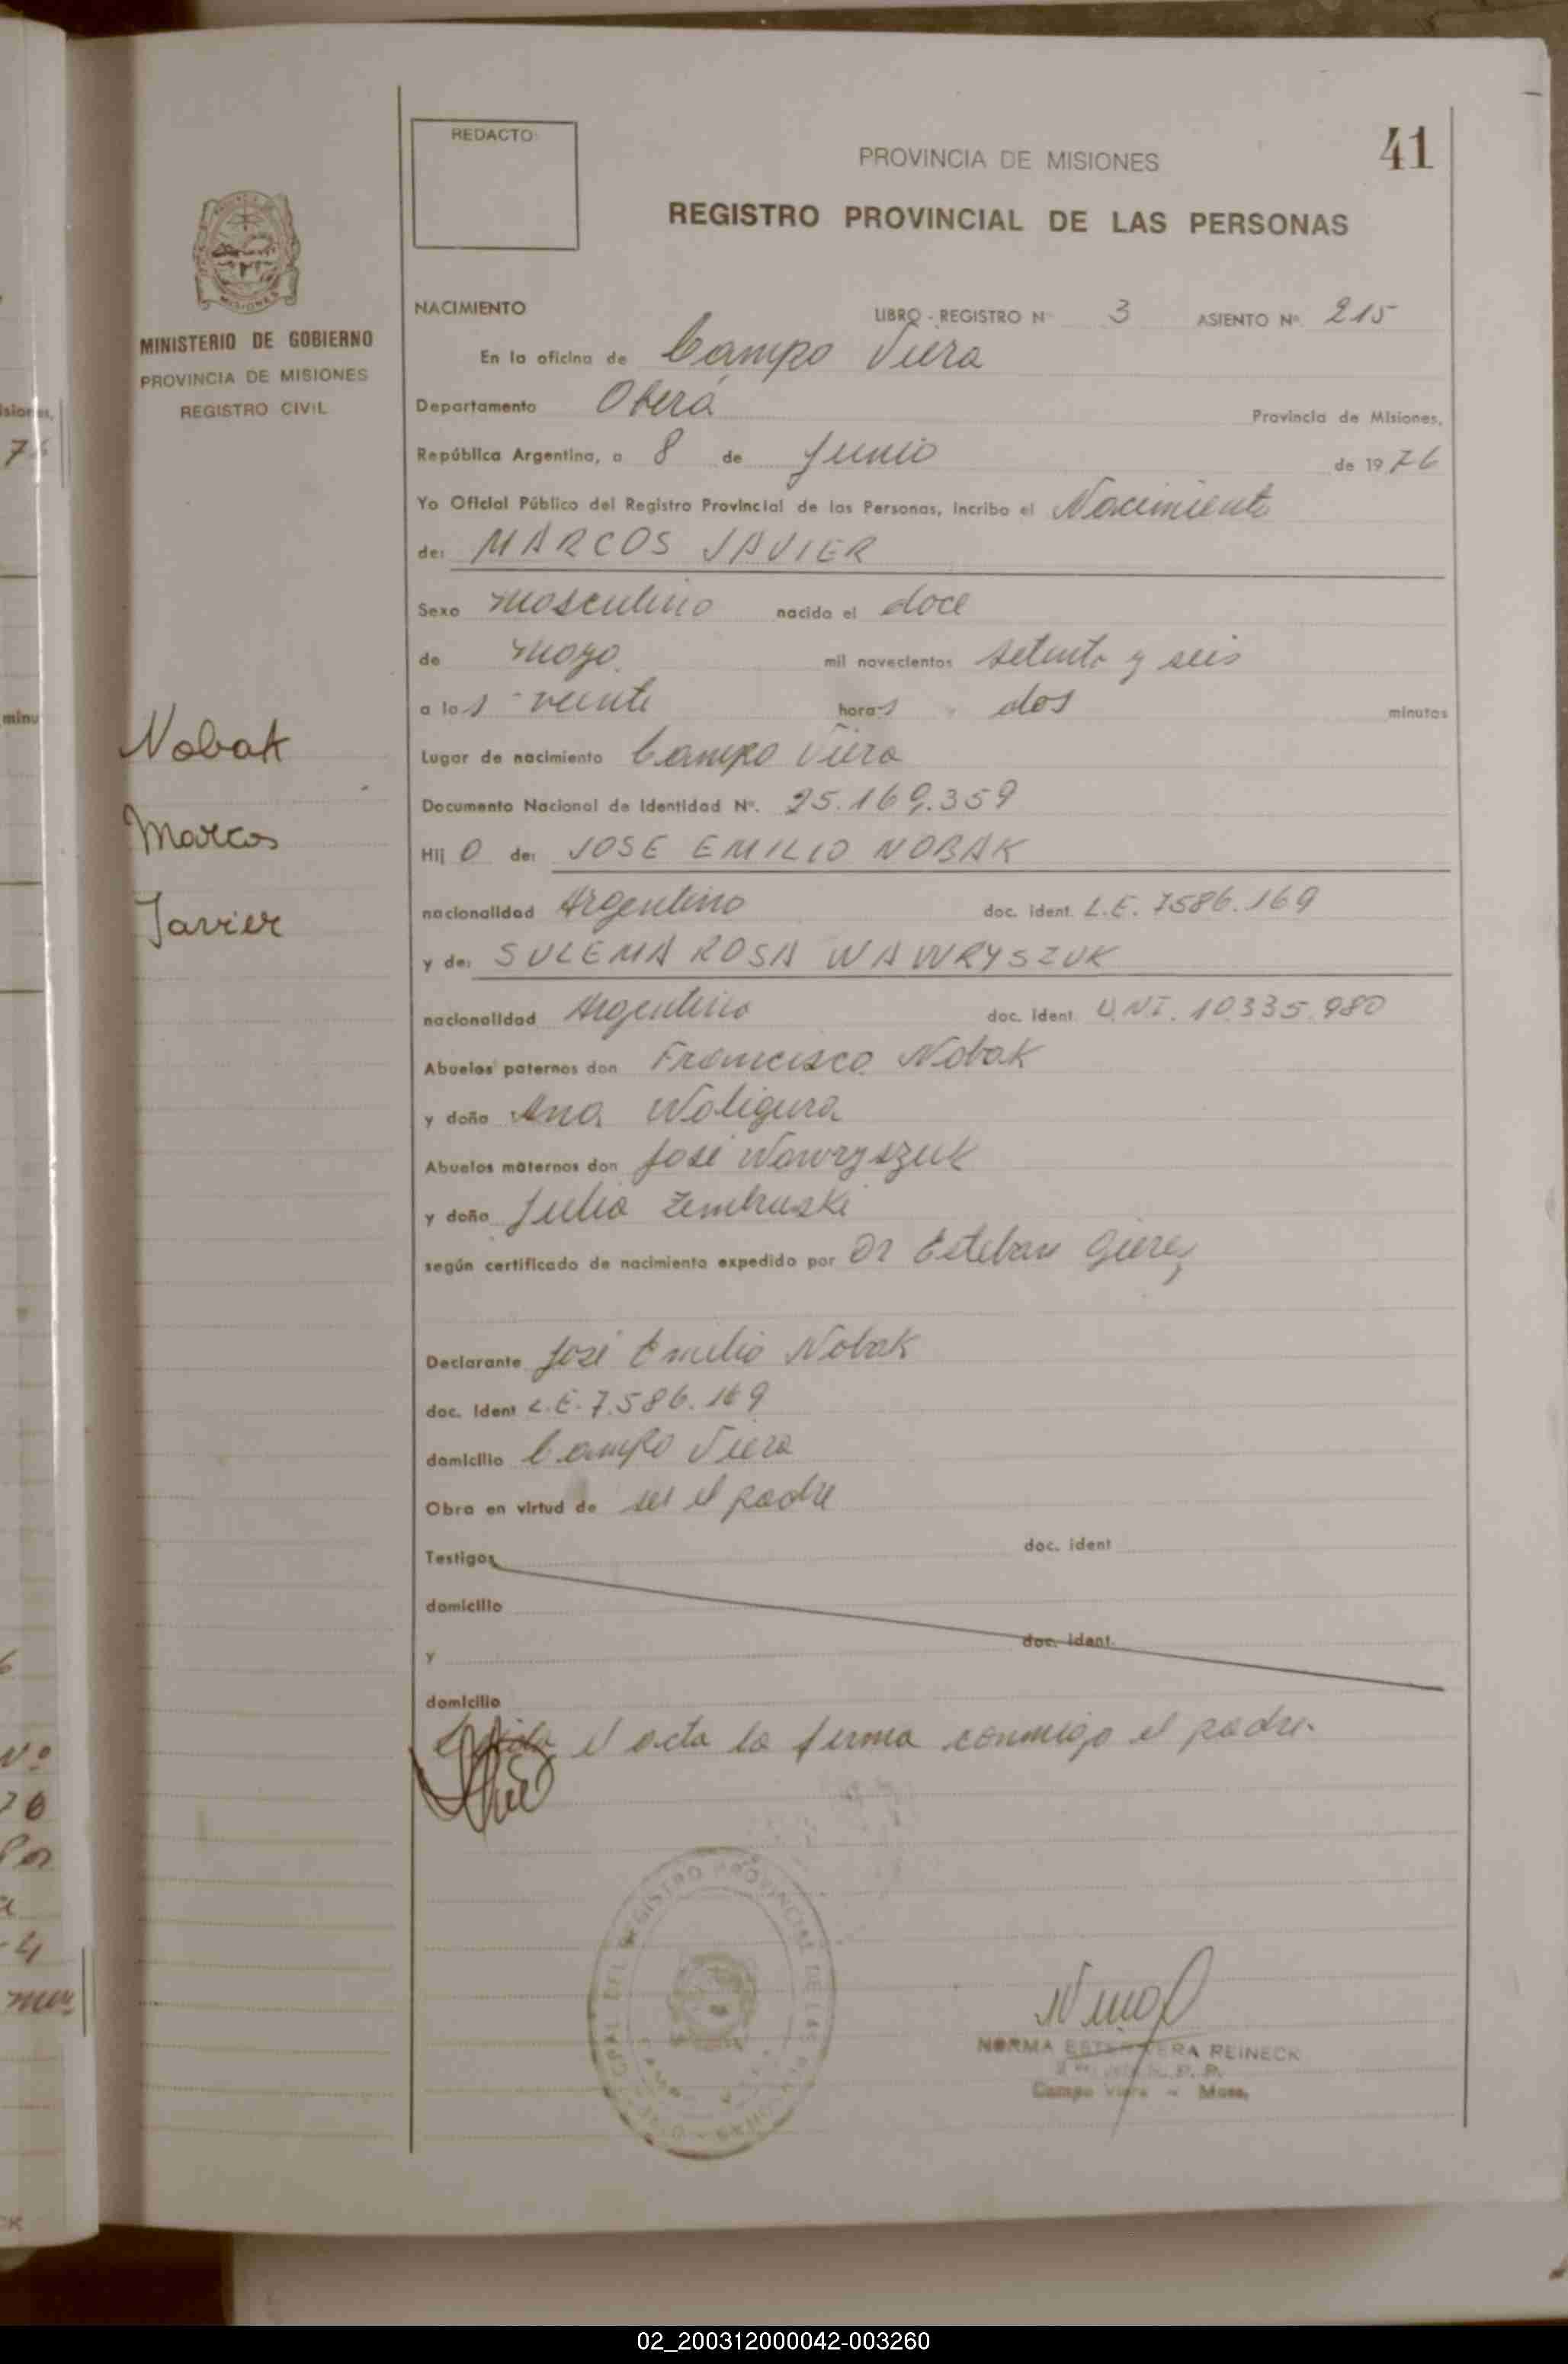 41
REDACTO:
PROVINCIA DE MISIONES
REGISTRO PROVINCIAL DE LAS PERSONAS
MINISTERIO DE GOBIERNO
PROVINCIA DE MISIONES
REGISTRO CIVIL
NACIMIENTO LIBRO - REGISTRO Nº 3 ASIENTO Nº. 215
En la oficina de Campo Viera
Departamento Oberá Provincia de Misiones,
República Argentina, a 8 de Junio de 1976
Yo Oficial Público del Registro Provincial de las Personas, incribo el Nacimiento
de: MARCOS JAVIER
Sexo masculino nacido el doce
de mayo mil novecientos setenta y seis
a las veinte horas dos minutos
Nobak
Marcos
Javier
Lugar de nacimiento Campo Viera
Documento Nacional de Identidad Nº. 25.169.359
Hij O de: JOSE EMILIO NOBAK
nacionalidad Argentino doc. ident. L.E. 7586.169
y de: SULEMA ROSA WAWRYSZUK
nacionalidad Argentina doc. ident. 10.335.980
Abuelos paternos don Francisco Nobak
y doña Ana Woligura
Abuelos maternos don José Wawryszuk
y doña Julia Zembruski
según certificado de nacimiento expedido por Dr Esteban
Declarante José Emilio Nobak
doc. Ident L.E. 7.586.169
domicilio Campo Viera
Obra en virtud de ser el padre
Testigos doc. ident
domicilio
y doc. ident.
domicilio
Leida el acta la firma conmigo el padre.
REGISTRO PROVINCIAL DE LAS PERSONAS
NORMA REINECK
Campo Viera - Mnes.
02_200312000042-003260